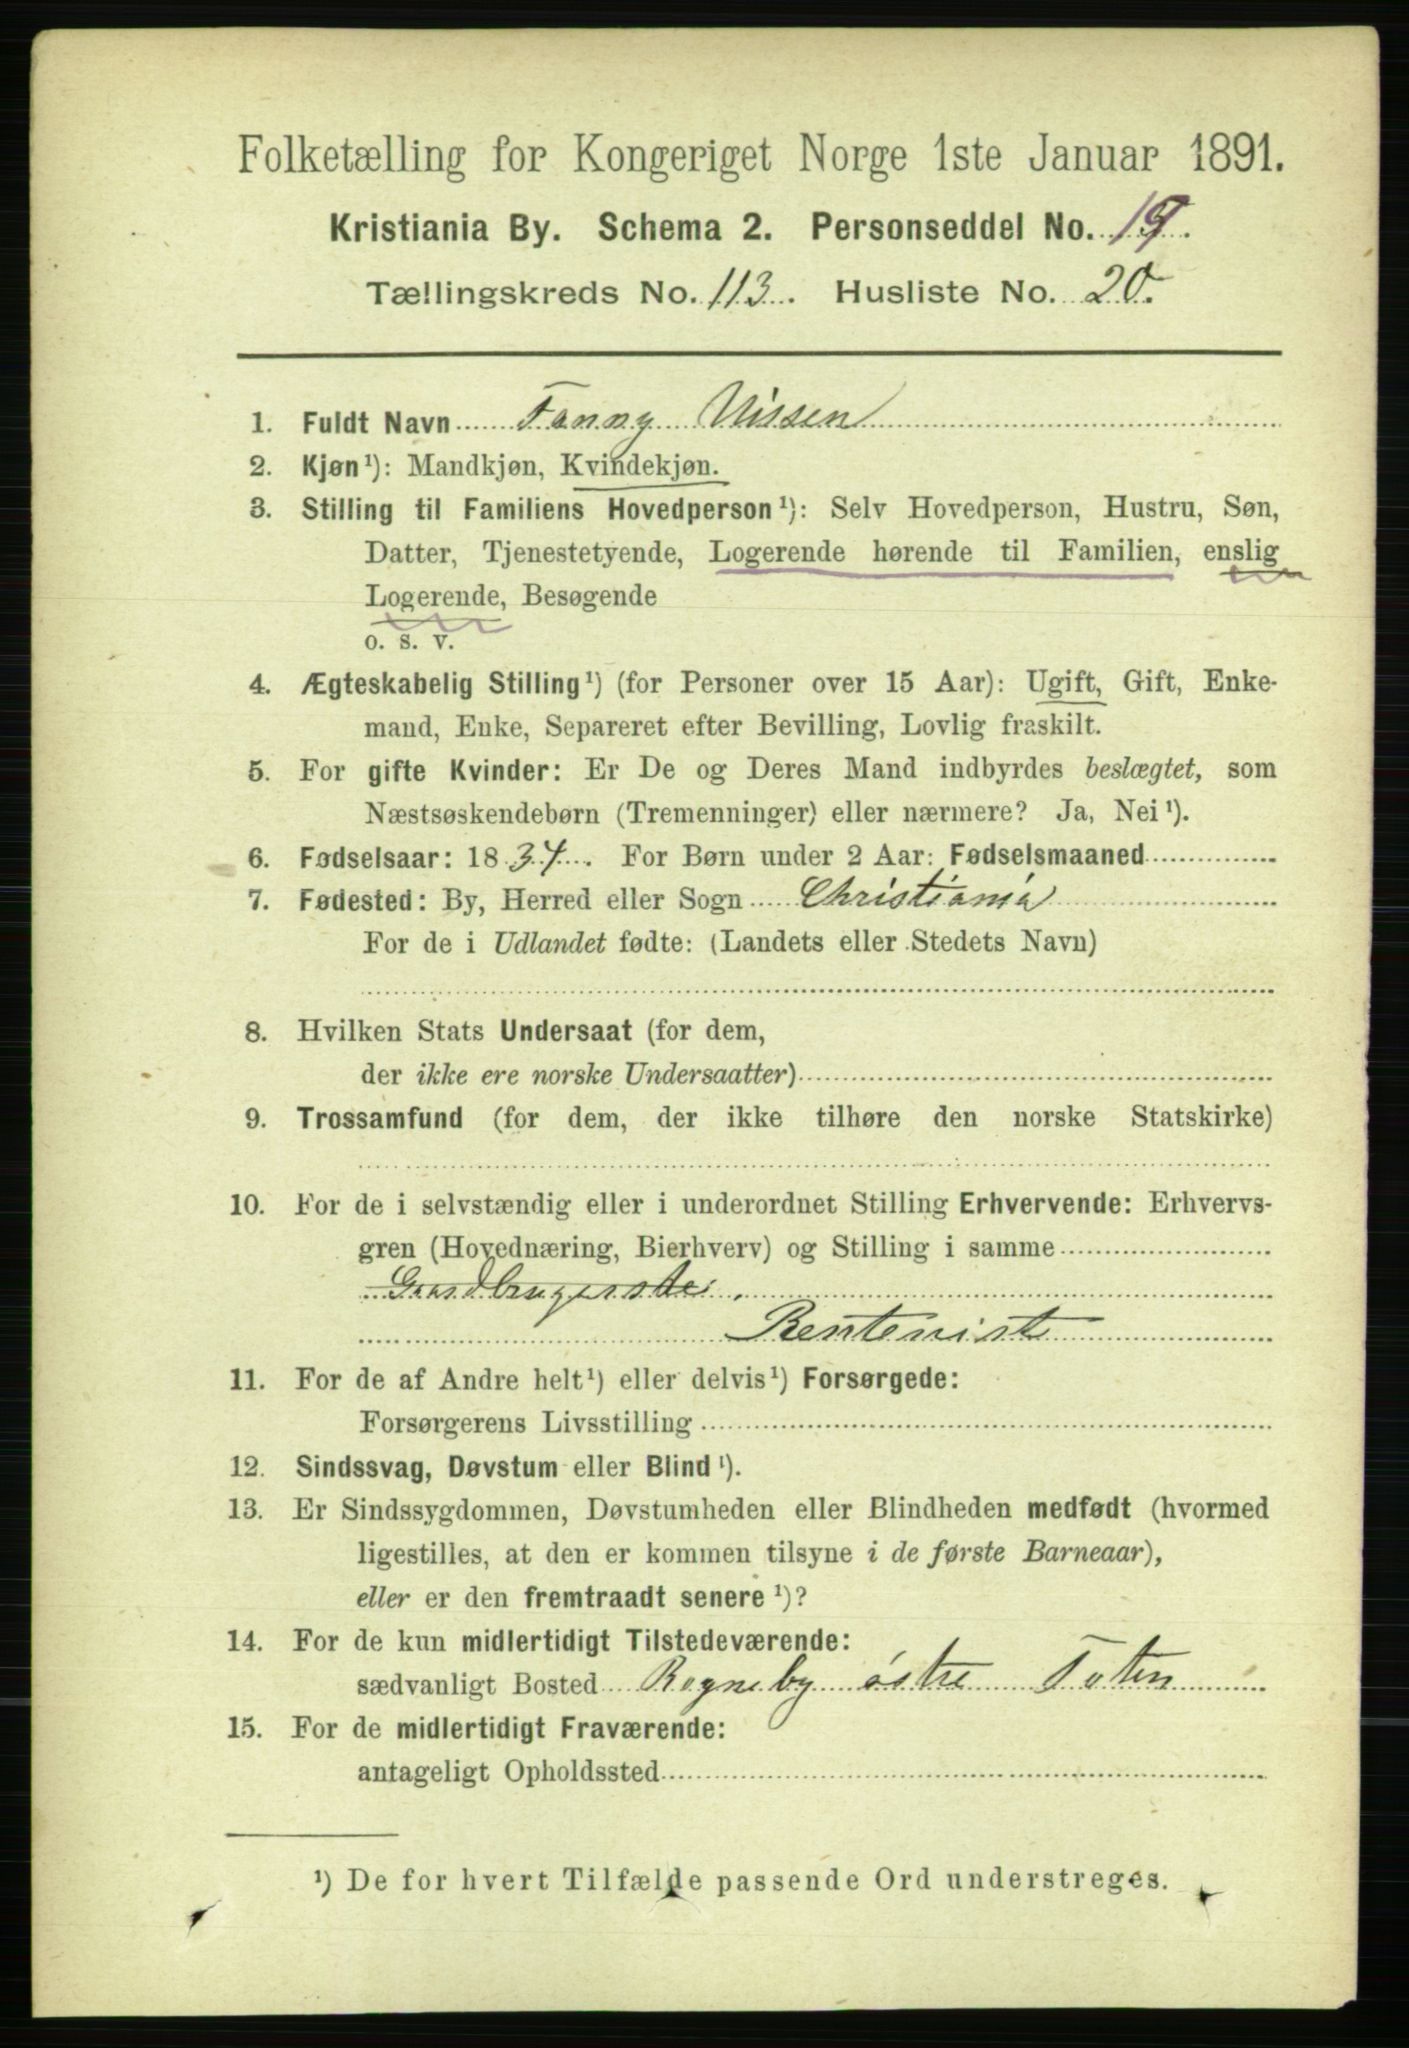 Folketælling for Kongeriget Norge 1ste Januar 1891.
Kristiania By. Schema 2. Personseddel No. 19.
Tællingskreds No. 113. Husliste No. 20.
1. Fuldt Navn Fanny Nissen
2. Kjøn¹): Mandkjøn, Kvindekjøn.
3. Stilling til Familiens Hovedperson¹): Selv Hovedperson, Hustru, Søn,
Datter, Tjenestetyende, Logerende hørende til Familien, enslig
Logerende, Besøgende
o. s. v.
4. Ægteskabelig Stilling¹) (for Personer over 15 Aar): Ugift, Gift, Enke-
mand, Enke, Separeret efter Bevilling, Lovlig fraskilt.
5. For gifte Kvinder: Er De og Deres Mand indbyrdes beslægtet, som
Næstsøskendebørn (Tremenninger) eller nærmere? Ja, Nei¹).
6. Fødselsaar: 1834. For Børn under 2 Aar: Fødselsmaaned
7. Fødested: By, Herred eller Sogn Christiania
For de i Udlandet fødte: (Landets eller Stedets Navn)
8. Hvilken Stats Undersaat (for dem,
der ikke ere norske Undersaatter)
9. Trossamfund (for dem, der ikke tilhøre den norske Statskirke)
10. For de i selvstændig eller i underordnet Stilling Erhvervende: Erhvervs-
gren (Hovednæring, Bierhverv) og Stilling i samme
Gaardbrugerske.
Rentenist
11. For de af Andre helt¹) eller delvis¹) Forsørgede:
Forsørgerens Livsstilling
12. Sindssvag, Døvstum eller Blind¹).
13. Er Sindssygdommen, Døvstumheden eller Blindheden medfødt (hvormed
ligestilles, at den er kommen tilsyne i de første Barneaar),
eller er den fremtraadt senere¹)?
14. For de kun midlertidigt Tilstedeværende:
sædvanligt Bosted Rogneby østre Toten
15. For de midlertidigt Fraværende:
antageligt Opholdssted
¹) De for hvert Tilfælde passende Ord understreges.